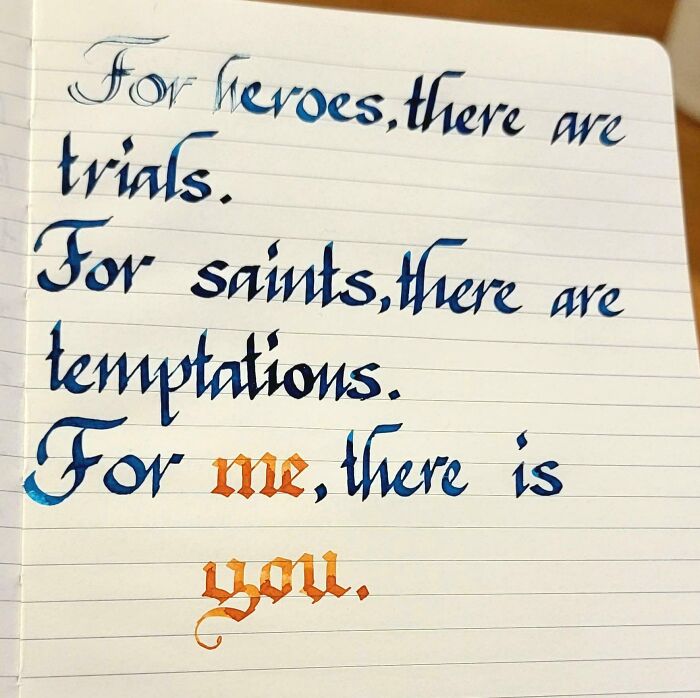 For heroes, there are
trials.
For saints, there are
temptations.
For me, there is
you.